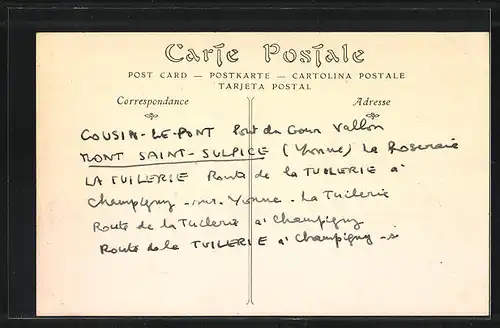 Carte Postale
POST CARD — POSTKARTE — CARTOLINA POSTALE
TARJETA POSTAL
Correspondance Adresse
COUSIN-LE-PONT Pont du Vallon
MONT SAINT-SULPICE (Yonne) La Roseraie
LA TUILERIE Route de la TUILERIE a'
Champigny-sur-Yonne - La Tuilerie
Route de la Tuilerie a' Champigny
Route de la TUILERIE a' Champigny-s